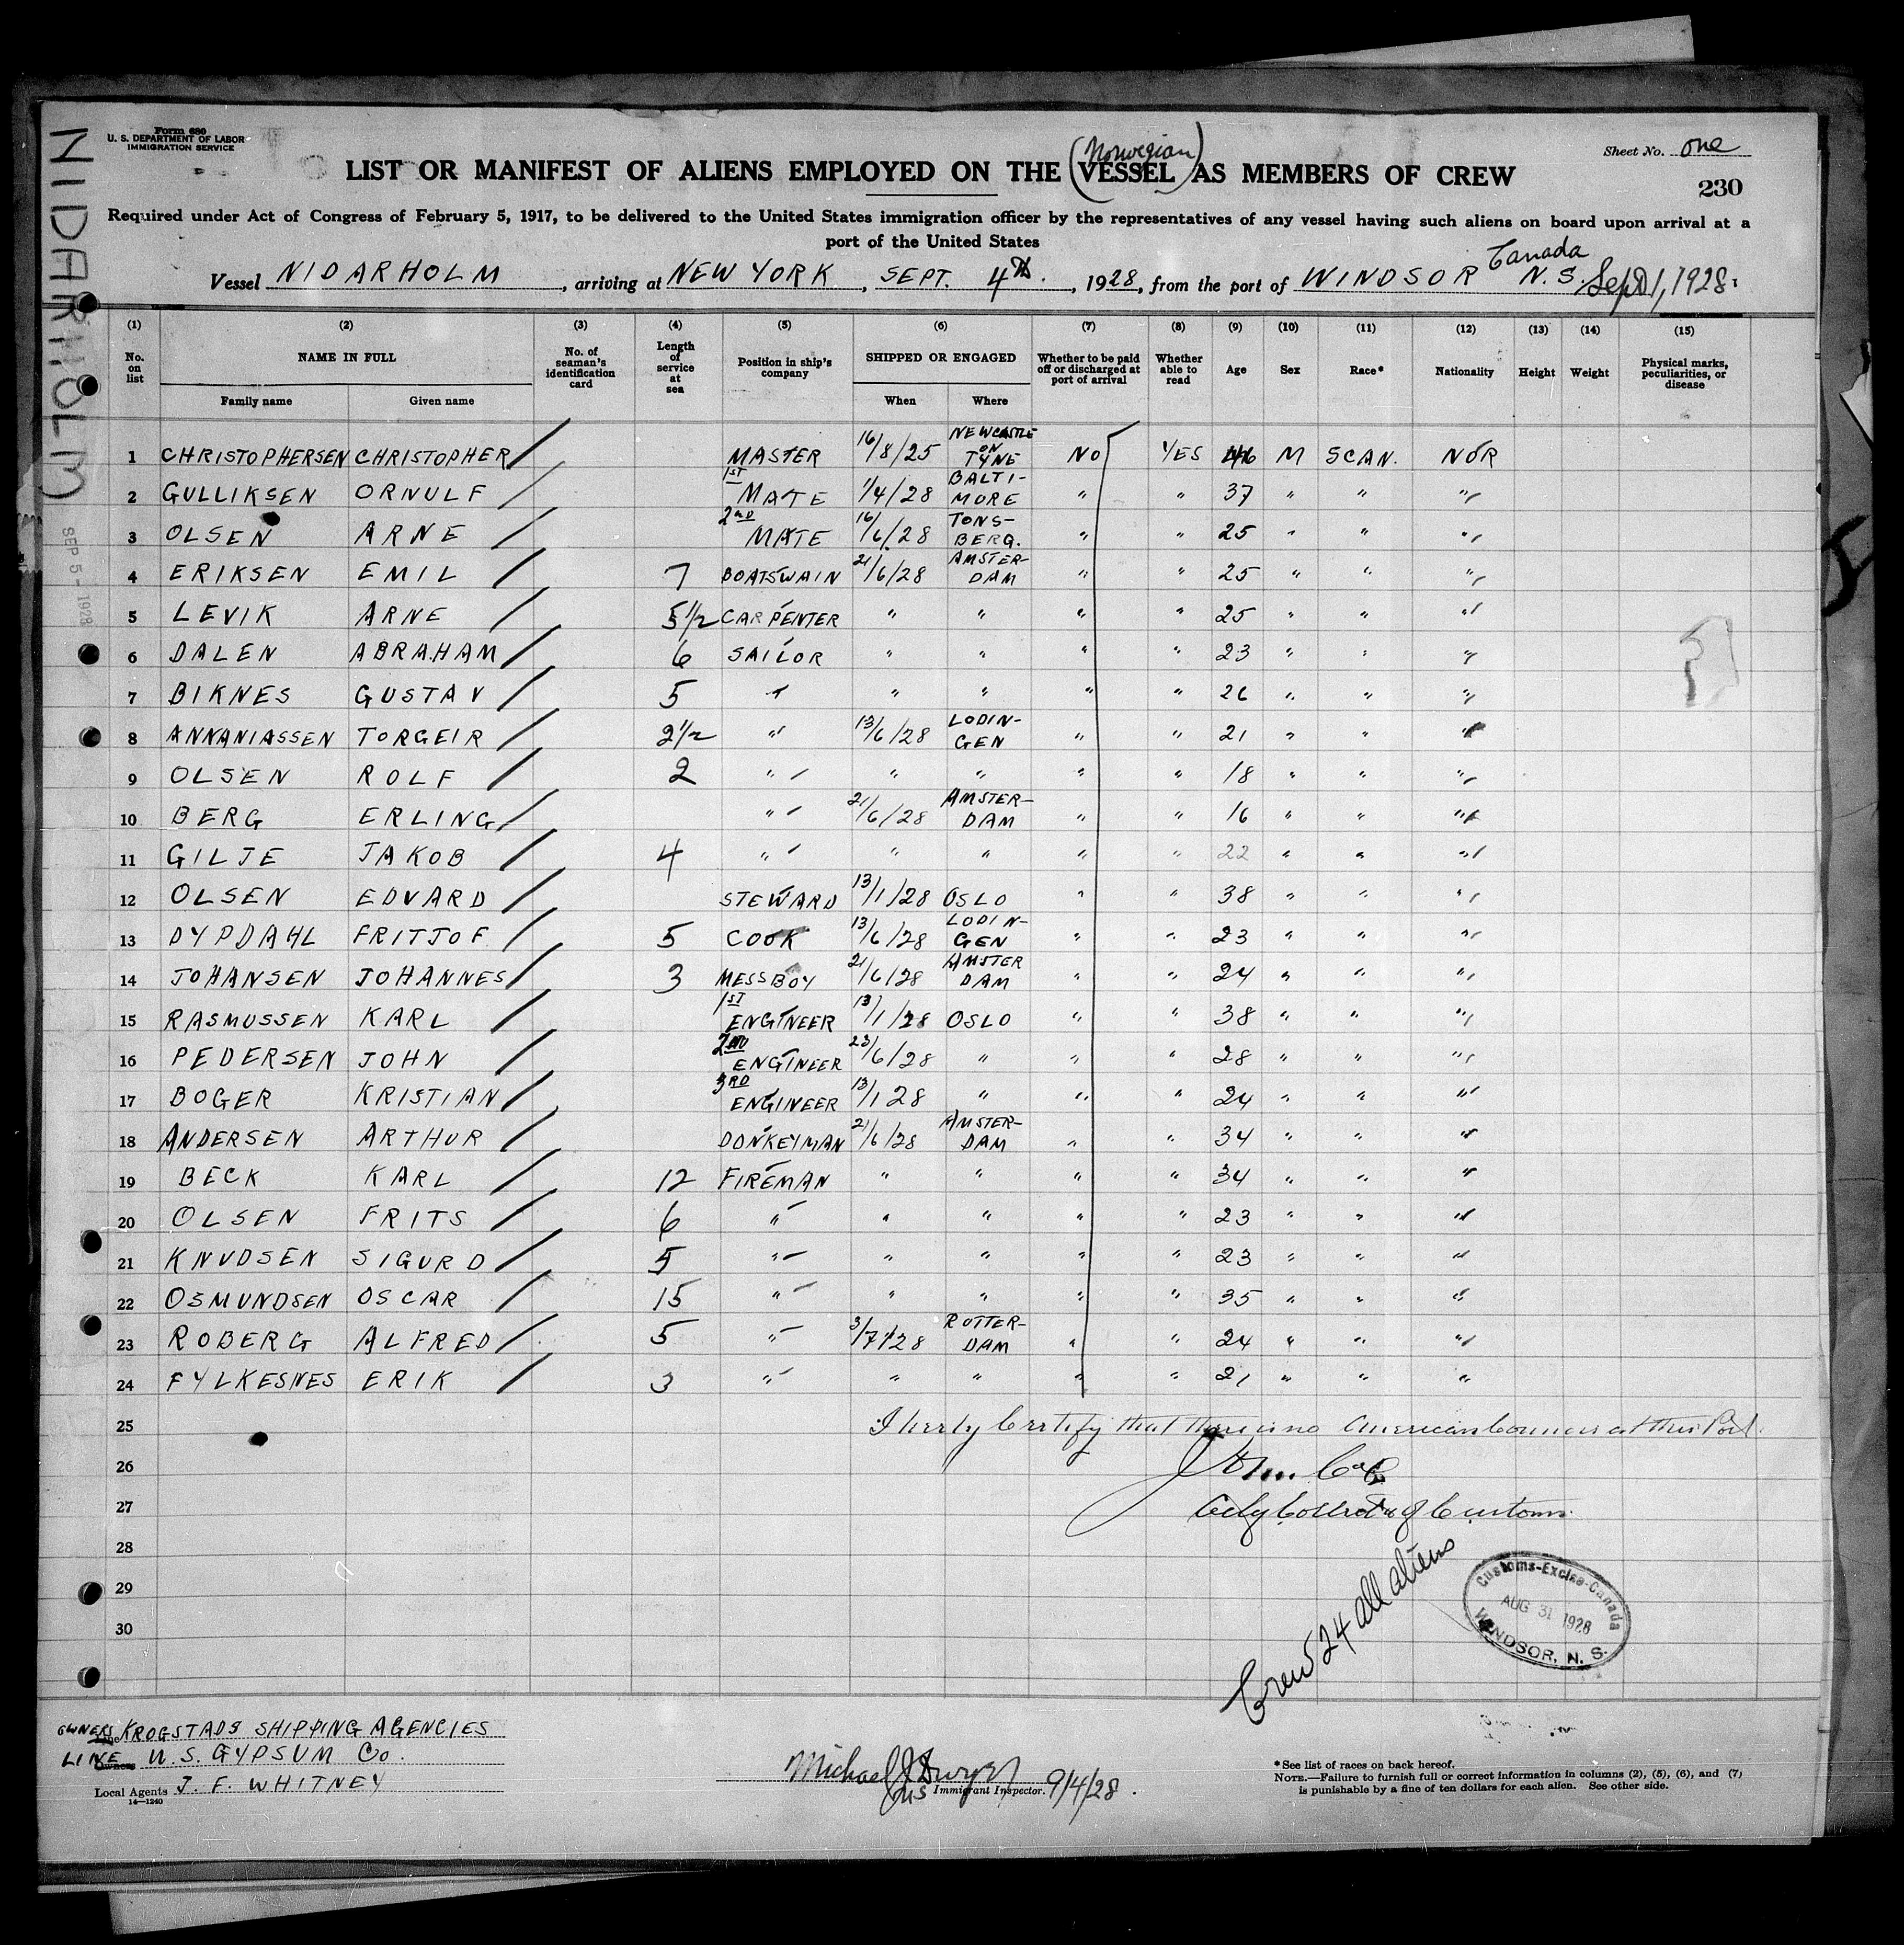 Form 680
U. S. DEPARTMENT OF LABOR
IMMIGRATION SERVICE
NIDARHOLM
SEP 5 - 1928
Sheet No. one
230
(Norwegian)
LIST OR MANIFEST OF ALIENS EMPLOYED ON THE VESSEL AS MEMBERS OF CREW
Required under Act of Congress of February 5, 1917, to be delivered to the United States immigration officer by the representatives of any vessel having such aliens on board upon arrival at a
port of the United States
Vessel NIDARHOLM, arriving at NEW YORK, SEPT. 4th., 1928, from the port of WINDSOR N.S. Canada Sept 1, 1928.
(1) (2) (3) (4) (5) (6) (7) (8) (9) (10) (11) (12) (13) (14) (15)
No. on list NAME IN FULL No. of seaman's identification card Length of service at sea Position in ship's company SHIPPED OR ENGAGED Whether to be paid off or discharged at port of arrival Whether able to read Age Sex Race* Nationality Height Weight Physical marks, peculiarities, or disease
Family name Given name When Where
1 CHRISTOPHERSEN CHRISTOPHER MASTER 16/8/25 NEWCASTLE ON TYNE NO YES 46 M SCAN. NOR
2 GULLIKSEN ORNULF 1ST MATE 1/4/28 BALTIMORE " " 37 " " "
3 OLSEN ARNE 2ND MATE 16/6/28 TONSBERG. " " 25 " " "
4 ERIKSEN EMIL 7 BOATSWAIN 21/6/28 AMSTER-DAM " " 25 " " "
5 LEVIK ARNE 5 1/2 CARPENTER " " " " 25 " " "
6 DALEN ABRAHAM 6 SAILOR " " " " 23 " " "
7 BIKNES GUSTAV 5 " " " " " 26 " " "
8 ANNANIASSEN TORGEIR 2 1/2 " 13/6/28 LODIN-GEN " " 21 " " "
9 OLSEN ROLF 2 " " " " " 18 " " "
10 BERG ERLING " 21/6/28 AMSTER-DAM " " 16 " " "
11 GILJE JAKOB 4 " " " " " 22 " " "
12 OLSEN EDVARD STEWARD 13/1/28 OSLO " " 38 " " "
13 DYPDAHL FRITJOF 5 COOK 13/6/28 LODIN-GEN " " 23 " " "
14 JOHANSEN JOHANNES 3 MESSBOY 21/6/28 AMSTER DAM " " 24 " " "
15 RASMUSSEN KARL 1ST ENGINEER 13/1/28 OSLO " " 38 " " "
16 PEDERSEN JOHN 2ND ENGINEER 23/6/28 " " " 28 " " "
17 BOGER KRISTIAN 3RD ENGINEER 13/1 28 " " " 24 " " "
18 ANDERSEN ARTHUR DONKEYMAN 21/6/28 AMSTER-DAM " " 34 " " "
19 BECK KARL 12 FIREMAN " " " " 34 " " "
20 OLSEN FRITS 6 " " " " " 23 " " "
21 KNUDSEN SIGURD 5 " " " " " 23 " " "
22 OSMUNDSEN OSCAR 15 " " " " " 35 " " "
23 ROBERG ALFRED 5 " 3/7/28 ROTTER-DAM " " 24 " " "
24 FYLKESNES ERIK 3 " " " " " 21 " " "
25 I hereby Certify that there is no American Consul at this Port.
26 John
27 Collector of Customs
28
29
30
Crew 24 all aliens
Customs-Excise-Canada
AUG 31 1928
WINDSOR, N. S.
OWNERS KROGSTADS SHIPPING AGENCIES
LINE U.S. GYPSUM Co.
Local Agents J. F. WHITNEY
14—1240
Michael J Dwyer
Immigrant Inspector. 9/4/28.
*See list of races on back hereof.
NOTE.—Failure to furnish full or correct information in columns (2), (5), (6), and (7)
is punishable by a fine of ten dollars for each alien. See other side.